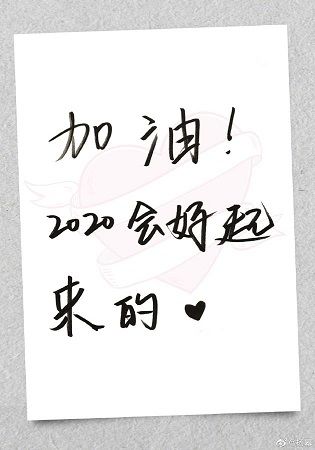 加油！
2020会好起
来的♥